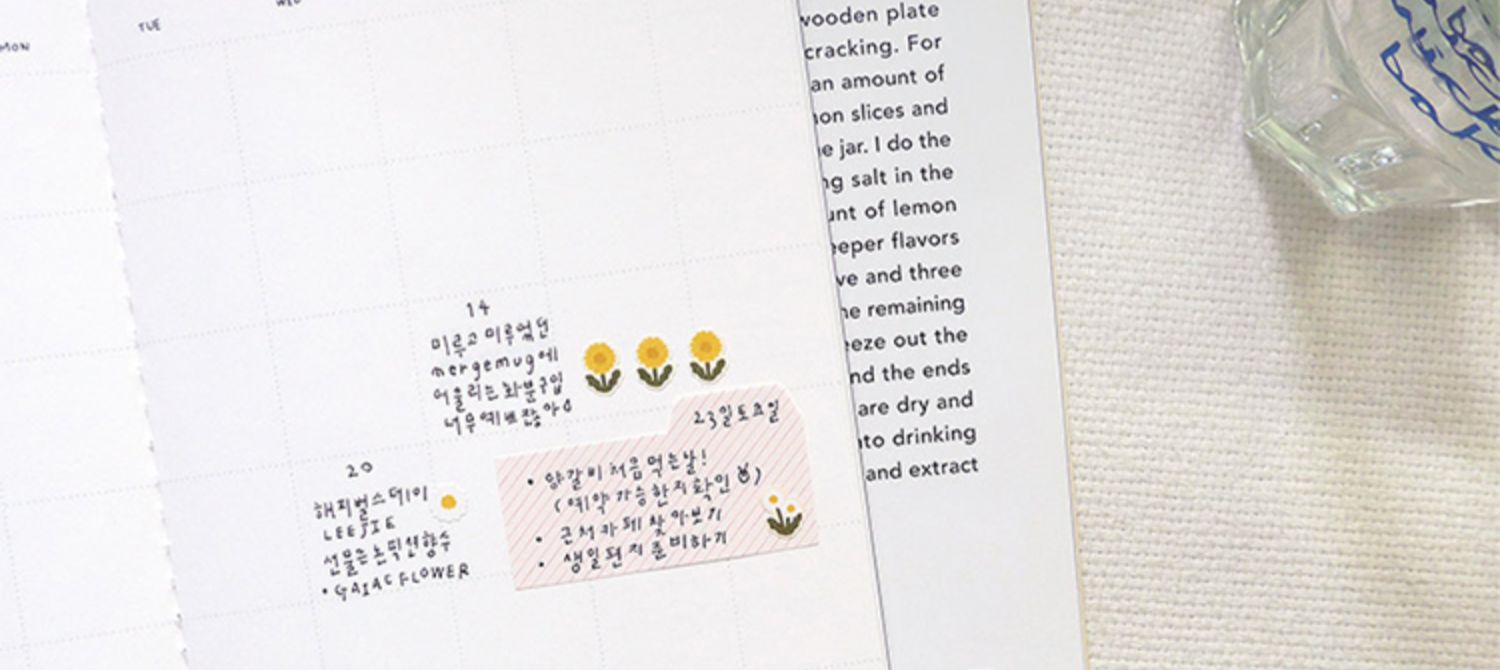 MON
TUE
WED
14
미루고 미루었던
mergemug에
어울리는 화분구입
너무 예쁘잖아
20
해피벌스데이
LEEJIE
선물은 논픽션향수
• GAIAC FLOWER
23일토요일
• 양갈비 처음 먹는날!
(예약 가능한지 확인)
• 근처카페 찾아보기
• 생일편지 준비하기
wooden plate
cracking. For
an amount of
on slices and
e jar. I do the
ng salt in the
unt of lemon
eeper flavors
ve and three
he remaining
eeze out the
nd the ends
are dry and
nto drinking
and extract